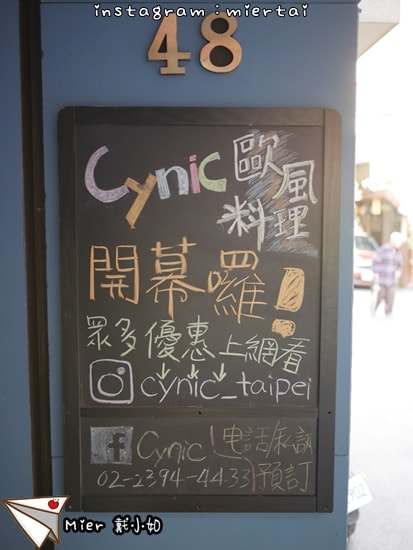 instagram：miertai
48
Cynic 歐風料理
開幕囉！
眾多優惠上網看
cynic_taipei
f Cynic | 電話/私訊
02-2394-4433 預訂
Mier 戴小如